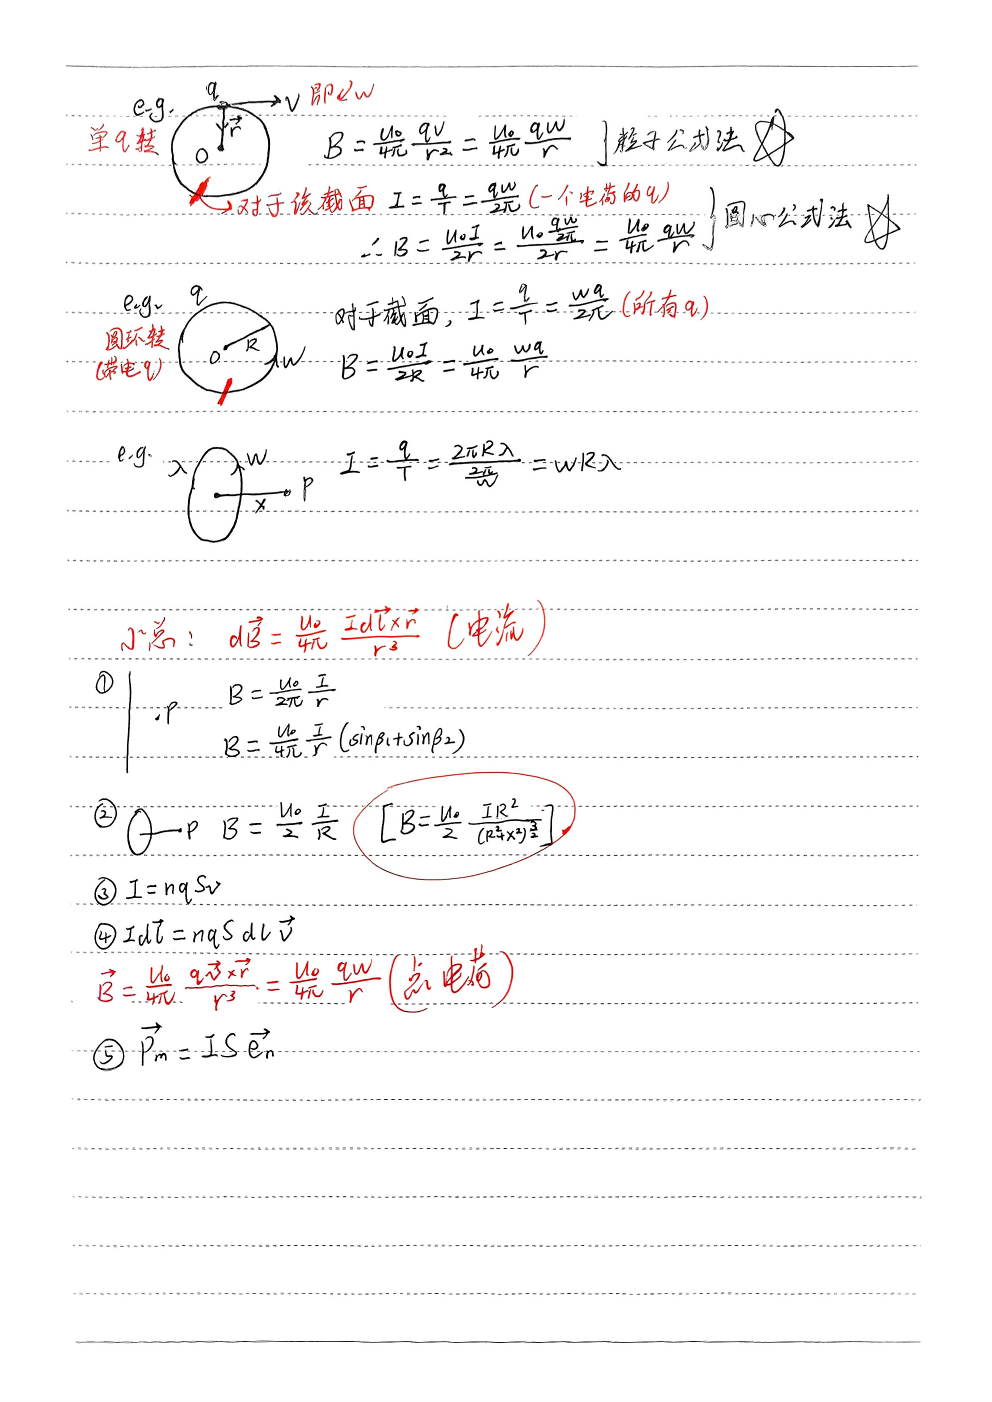 e.g. q v 即以w
单q转 r⃗ O B = u₀/4π qv/r² = u₀/4π qw/r } 粒子公式法 ☆
对于该截面 I = q/T = qw/2π (一个电荷的q)
∴ B = u₀I/2r = u₀(qw/2π)/2r = u₀/4π qw/r } 圆心公式法 ☆
e.g. q 对于截面, I = q/T = wq/2π (所有q)
圆环转 O R w
(带电q) B = u₀I/2R = u₀/4π wq/r
e.g. λ w x P I = q/T = 2πRλ/(2π/w) = wRλ
小总: dB⃗ = u₀/4π Idl⃗×r⃗/r³ (电流)
① .P B = u₀/2π I/r
B = u₀/4π I/r (sinβ₁+sinβ₂)
② P B = u₀/2 I/R [B = u₀/2 IR²/(R²+x²)^(3/2)]
③ I = nqSv
④ Idl⃗ = nqS dl v⃗
B⃗ = u₀/4π qv⃗×r⃗/r³ = u₀/4π qw/r (点电荷)
⑤ P⃗m = IS e⃗n